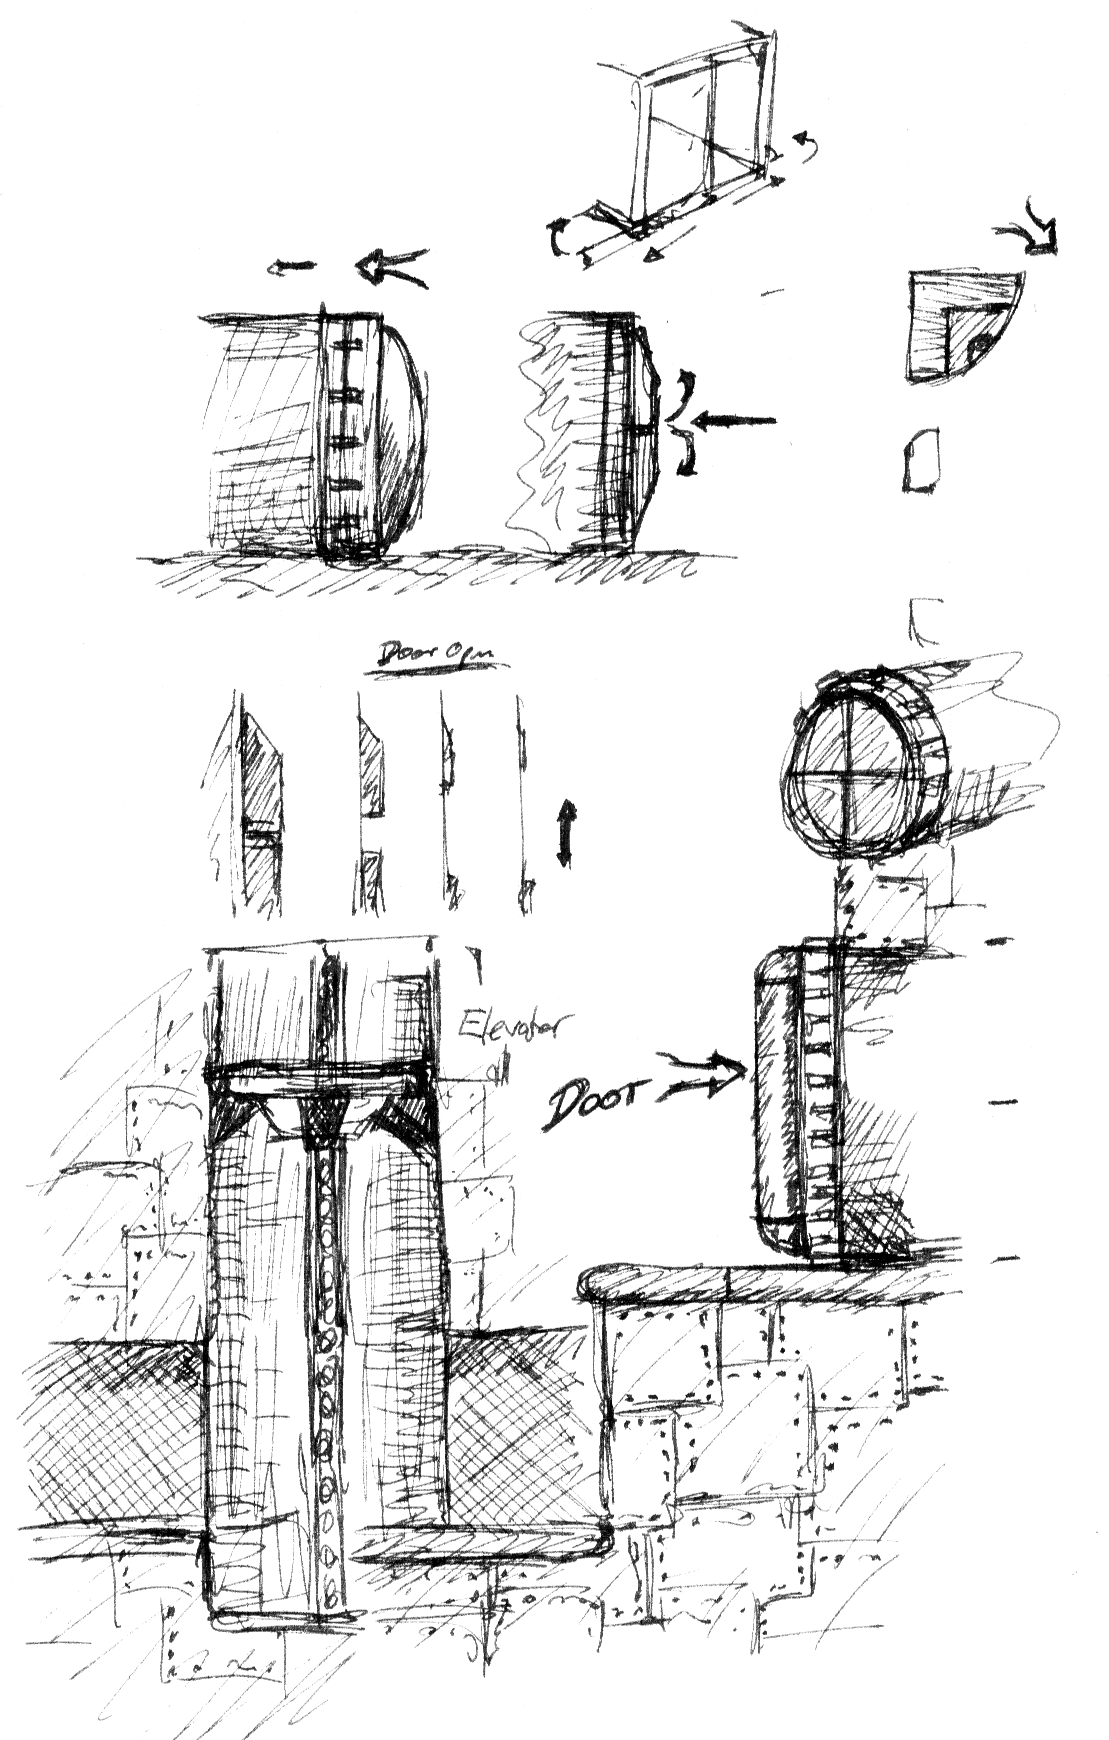 Door Open
Elevator
Door